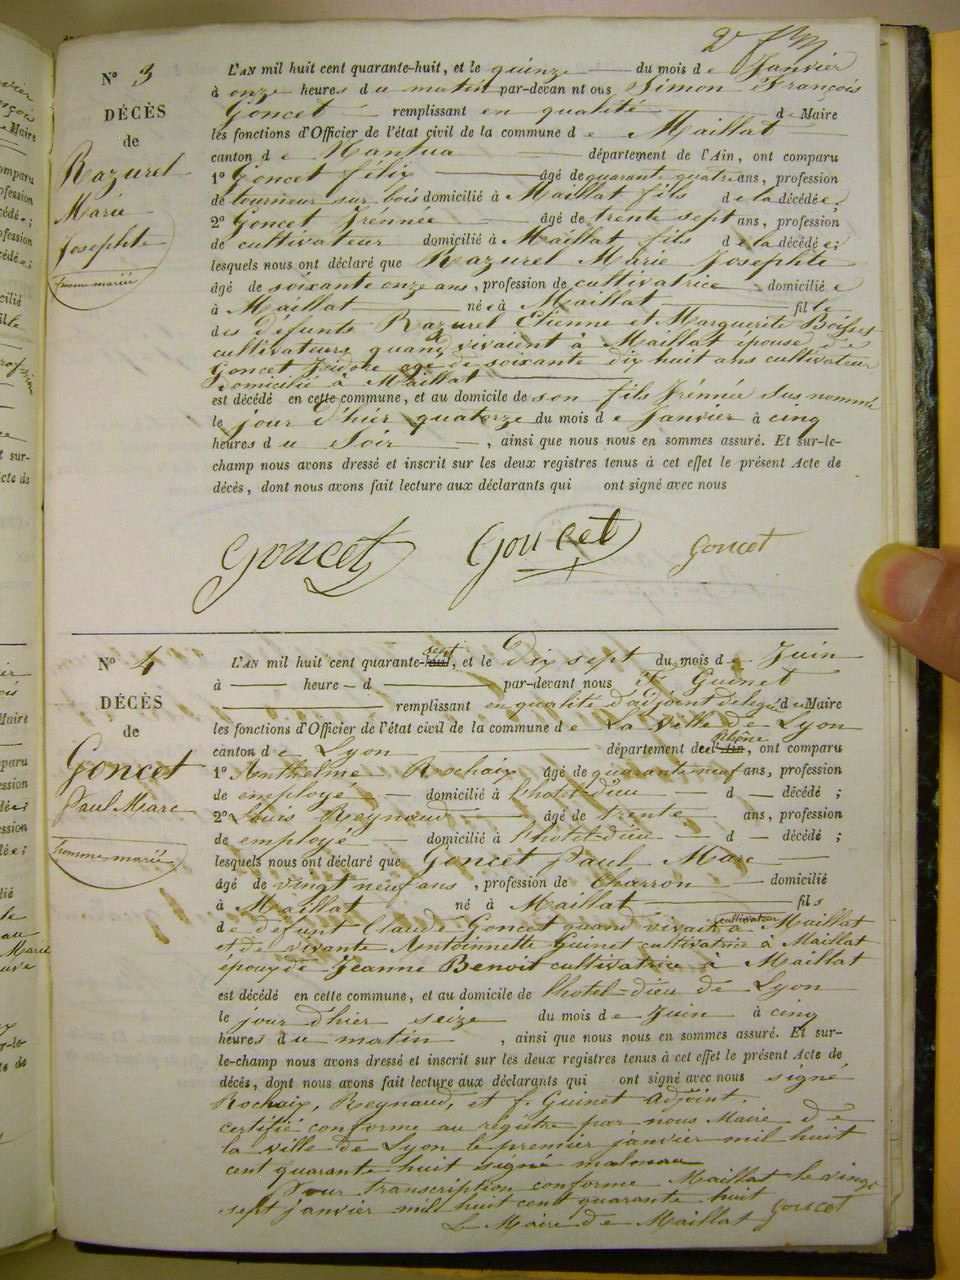 N° 3
DÉCÈS
de
Razurel
Marie
Josephte
femme mariée
L'AN mil huit cent quarante-huit, et le quinze du mois de Janvier
à onze heures du matin par-devant nous Simon François
Goncet remplissant en qualité de Maire
les fonctions d'Officier de l'état civil de la commune de Maillat
canton de Nantua département de l'Ain, ont comparu
1° Goncet félix âgé de quarante quatre ans, profession
de tourneur sur bois domicilié à Maillat fils de la décédée;
2° Goncet Irénnée âgé de trente sept ans, profession
de cultivateur domicilié à Maillat fils de la décédée;
lesquels nous ont déclaré que Razurel Marie Josephte
âgé de soixante onze ans, profession de cultivatrice domicilié e
à Maillat née à Maillat fille
des défunts Razurel Etienne et Marguerite
cultivateurs quand vivaient à Maillat épouse de
Goncet Isidore agé de soixante dix huit ans cultivateur
domicilié à Maillat
est décédé en cette commune, et au domicile de son fils Irénnée sus nommé
le jour d'hier quatorze du mois de Janvier à cinq
heures du soir , ainsi que nous nous en sommes assuré. Et sur-le-
champ nous avons dressé et inscrit sur les deux registres tenus à cet effet le présent Acte de
décès, dont nous avons fait lecture aux déclarants qui ont signé avec nous
Goncet Goncet Goncet
N° 4
DÉCÈS
de
Goncet
Paul Marc
homme marié
L'AN mil huit cent quarante-huit sept, et le Dix sept du mois de Juin
à heure d par-devant nous F. Guinet
remplissant en qualité d'adjoint délégué de Maire
les fonctions d'Officier de l'état civil de la commune de La ville de Lyon
canton de Lyon département de l'Ain Rhône, ont comparu
1° Anthelme Rochaix âgé de quarante neuf ans, profession
de employé domicilié à l'hotel-dieu d décédé ;
2° Louis Reynaud âgé de trente ans, profession
de employé domicilié à l'hotel-dieu d décédé ;
lesquels nous ont déclaré que Goncet Paul Marc
âgé de vingt neuf ans , profession de charron domicilié
à Maillat né à Maillat fils
de défunt Claude Goncet quand vivait cultivateur à Maillat
et de vivante Antoinnette Guinet cultivatrice à Maillat
époux de Jeanne Benoit cultivatrice à Maillat
est décédé en cette commune, et au domicile de l'hotel-dieu de Lyon
le jour d'hier seize du mois de Juin à cinq
heures du matin , ainsi que nous nous en sommes assuré. Et sur-
le-champ nous avons dressé et inscrit sur les deux registres tenus à cet effet le présent Acte de
décès, dont nous avons fait lecture aux déclarants qui ont signé avec nous signé
Rochaix, Reynaud, et f. Guinet adjoint.
certifié conforme au régistre par nous Maire de
la ville de Lyon le premier janvier mil huit
cent quarante huit signé
Pour transcription conforme Maillat le vingt
sept janvier mil huit cent quarante huit
Le Maire de Maillat Goncet